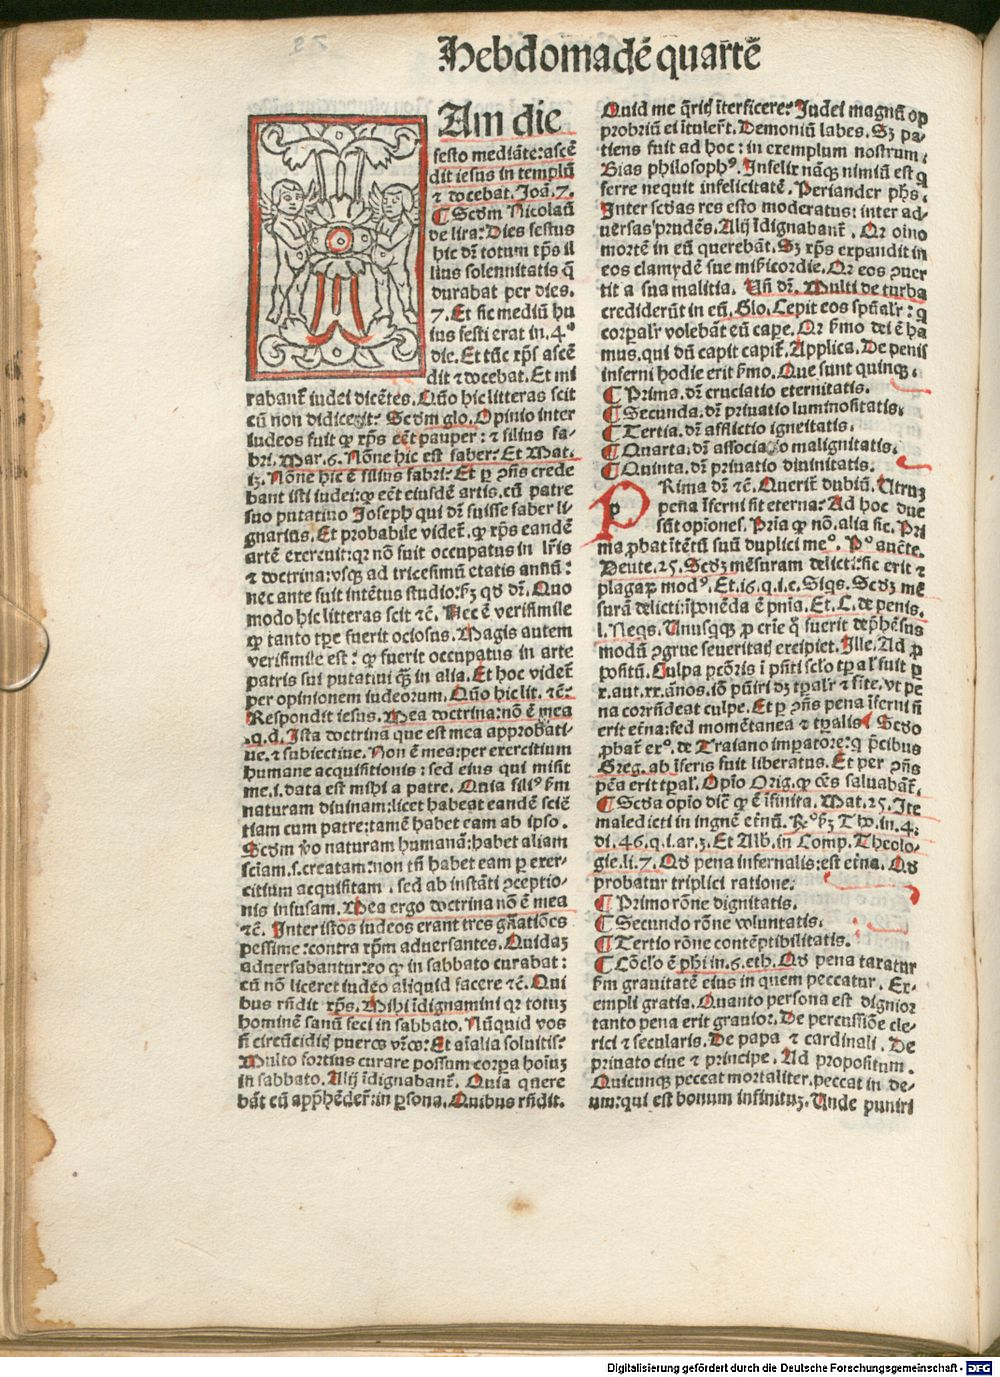 Hebdomadē quartē
Am die
festo mediāte: ascē
dit iesus in templū
⁊ docebat. Joā. 7.
¶ Scdm Nicolaū
de lira: Dies festus
hic dr̄ totum tp̄s il
lius solennitatis q̄
durabat per dies.
7. Et sic mediū hu
ius festi erat in. 4°
die. Et tūc xp̄s ascē
dit ⁊ docebat. Et mi
rabant̄ iudei dicētes. Quō hic litteras scit
cū non didicerit? Scdm glo. Opinio inter
iudeos fuit ꝙ xp̄s eēt pauper: ⁊ filius fa-
bri. Mar. 6. Nōne hic est faber? Et Mat.
13. Nōne hic ē filius fabri? Et ꝑ ꝯn̄s crede
bant isti iudei: ꝙ eēt eiusdē artis. cū patre
suo putatiuo Joseph qui dr̄ fuisse faber li-
gnarius. Et probabile videt̄. ꝙ xp̄s eandē
artē exercuit: qr nō fuit occupatus in lr̄is
⁊ doctrina: vsqꝫ ad tricesimū etatis annū:
nec ante fuit intētus studio: ẜꝫ qd dr̄. Quo
modo hic litteras scit ⁊c̄. Nec ē verisimile
ꝙ tanto tꝑe fuerit ociosus. Magis autem
verisimile est: ꝙ fuerit occupatus in arte
patris sui putatiui qꝫ in alia. Et hoc videt̄
per opinionem iudeorum. Quō hic lit. ⁊c̄.
Respondit iesus. Mea doctrina: nō ē mea
.q.d. Ista doctrina que est mea approbati-
ue. ⁊ subiectiue. Non ē mea: per exercitium
humane acquisitionis: sed eius qui misit
me. i. data est mihi a patre. Quia fili° ẜm
naturam diuinam: licet habeat eandē sciē
tiam cum patre: tamē habet eam ab ipso.
Scdm ꝟo naturam humanā: habet aliam
sciam. s. creatam: non tn̄ habet eam ꝑ exer-
citium acquisitam. sed ab instāti ꝯceptio-
nis infusam. Mea ergo doctrina nō ē mea
⁊c̄. Inter istos iudeos erant tres gn̄atiōes
pessime: contra xp̄m aduersantes. Quidaꝫ
aduersabantur: eo ꝙ in sabbato curabat:
cū nō liceret iudeo aliquid facere ⁊c̄. Qui
bus rn̄dit xp̄s. Mihi īdignamini qr totuꝫ
hominē sanū feci in sabbato. Nūquid vos
nō circūcidiꝭ pueros vr̄os? Et aīalia soluitis?
Multo fortius curare possum corpa hoīuꝫ
in sabbato. Alij īdignabant̄. Quia quere
bāt eū app̄hēder̄: in ꝑsona. Quibus rn̄dit.
Quid me q̄ritꝭ īterficere? Judei magnū op
probriū ei ītuler̄t. Demoniū habes. Sꝫ pa-
tiens fuit ad hoc: in exemplum nostrum.
Bias philosoph°. Infelix nāqꝫ nimiū est q
ferre nequit infelicitatē. Periander ph̄s.
Inter scdas res esto moderatus: inter ad-
uersas prudēs. Alij īdignabant̄. Qr oīno
mortē in eū querebāt. Sꝫ xp̄s expandit in
eos clamydē sue mīsericordie. Qr eos ꝯuer
tit a sua malitia. Vn̄ dr̄. Multi de turba
crediderūt in eū. Glo. Cepit eos spūalr̄: q
corꝑalr̄ volebāt eū cape. Qr ẜmo dei ē ha
mus. qui dū capit capit̄. Applica. De penis
inferni hodie erit ẜmo. Que sunt quinqꝫ.
¶ Prima. dr̄ cruciatio eternitatis.
¶ Secunda. dr̄ priuatio luminositatis.
¶ Tertia. dr̄ afflictio igneitatis.
¶ Quarta. dr̄ associatio malignitatis.
¶ Quinta. dr̄ priuatio diuinitatis.
PRima dr̄ ⁊c̄. Querit̄ dubiū. Vtruꝫ
pena īferni sit eterna? Ad hoc due
sūt opiōnes. Pria ꝙ nō. alia sic. Pri
ma ꝓbat ītētū suū duplici me°. P° auc̄te.
Deute. 25. Scdꝫ mēsuram delicti: sic erit ⁊
plagaꝝ mod°. Et. 16. q. i. c. Siqs. Scdꝫ mē
surā delicti: īponēda ē pn̄ia. Et. C. de penis.
l. Neqs. Vnusqꝫ ꝓ crīe q̄ fuerit dep̄hēsus
modū ꝯgrue seueritatꝭ excipiet. Ille. Ad ꝓ
positū. Culpa pctōris ī pn̄ti sclo tꝑal̄ fuit ꝑ
x. aut. xx. ānos. iō pūiri dꝫ tꝑalr̄ ⁊ fīte. vt pe
na corrn̄deat culpe. Et ꝑ ꝯn̄s pena īferni nō
erit et̄na: sed momētanea ⁊ tꝑalis. Scdo
ꝓbat̄ ex°. de Traiano impatore: q p̄cibus
Greg. ab īferis fuit liberatus. Et per ꝯn̄s
pēa erit tꝑal̄. Opīo Orig. ꝙ oēs saluabāt̄.
¶ Scda opīo dic̄ ꝙ ē īfinita. Mat. 25. Ite
maledicti in ignē et̄nū. R° ẜꝫ Tho. in. 4.
di. 46. q. i. ar. 3. Et Alb. in Comp. Theolo-
gie. li. 7. Qd pena infernalis: est et̄na. Qd
probatur triplici ratione.
¶ Primo rōne dignitatis.
¶ Secundo rōne voluntatis.
¶ Tertio rōne contēptibilitatis.
¶ Cōclo ē phi in. 6. eth. Qd pena taxatur
ẜm grauitatē eius in quem peccatur. Ex-
empli gratia. Quanto persona est dignior
tanto pena erit grauior. De percussiōe cle-
rici ⁊ secularis. De papa ⁊ cardinali. De
priuato ciue ⁊ principe. Ad propositum.
Quicunqꝫ peccat mortaliter. peccat in de-
um: qui est bonum infinituꝫ. Unde puniri
Digitalisierung gefördert durch die Deutsche Forschungsgemeinschaft - DFG